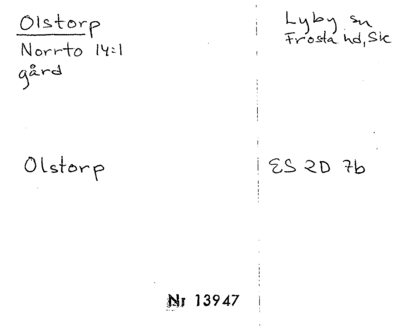 Olstorp
Norrto 14:1
gård
Lyby sn
Frosta hd, Sk
Olstorp
ES 2D 7b
Nr 13947